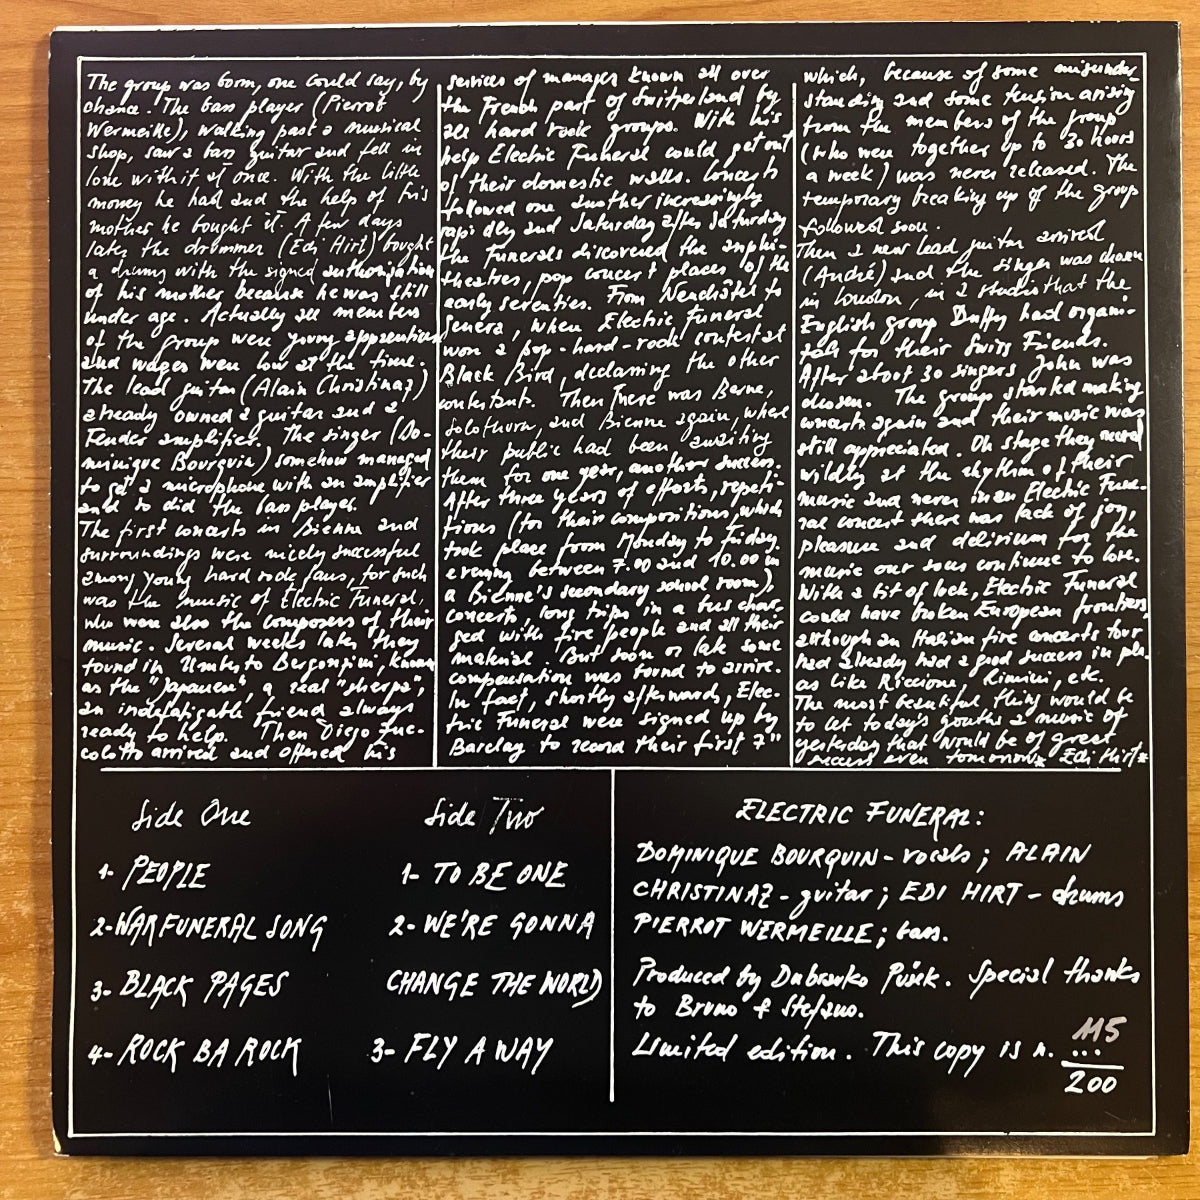 The group was born, one could say, by
chance. The bass player (Pierrot
Wermeille), walking past a musical
shop, saw a bass guitar and fell in
love with it at once. With the little
money he had and the help of his
mother he bought it. A few days
later the drummer (Edi Hirt) bought
a drums with the signed authorization
of his mother because he was still
under age. Actually all members
of the group were young apprentices
and wages were low at the time.
The lead guitar (Alain Christinaz)
already owned a guitar and a
Fender amplifier. The singer (Do-
minique Bourquin) somehow managed
to get a microphone with an amplifier
and so did the bass player.
The first concerts in Bienne and
surroundings were nicely successful
among young hard rock fans, for such
was the music of Electric Funeral,
who were also the composers of their
music. Several weeks later they
found in Umberto Bergonzini, known
as the "Japanese", a real "sherpa",
an indefatigable friend always
ready to help. Then Diego Zuc-
colotto arrived and offered his
services of manager known all over
the French part of Switzerland by
all hard rock groups. With his
help Electric Funeral could get out
of their domestic walls. Concerts
followed one another increasingly
rapidley and Saturday after Saturday
the Funerals discovered the amphi-
theatres, pop concert places of the
early seventies. From Neuchâtel to
Geneva, when Electric Funeral
won a pop-hard-rock contest at
Black Bird, declassing the other
contestant. Then there was Berne,
Solothurn, and Bienne again, where
their public had been awaiting
them for one year, another success.
After three years of efforts, repeti-
tions (for their compositions, which
took place from Monday to Friday
evening between 7.00 and 10.00 in
a Bienne's secondary school room)
concerts, long trips in a bus char-
ged with five people and all their
material. But soon or late some
compensation was found to arrive.
In fact, shortly afterwards, Elec-
tric Funeral were signed up by
Barclay to record their first 7"
which, because of some misunder_
standing and some tension arising
from the members of the group
(who were together up to 30 hours
a week) was never released. The
temporary breaking up of the group
followed soon.
Then a new lead guitar arrived
(André) and the singer was chosen
in London, in a studio that the
English group Duffy had organi-
zed for their Swiss Friends.
After about 30 singers John was
chosen. The group started making
concerts again and their music was
still appreciated. On stage they moved
wildly at the rhythm of their
music and never in an Electric Fune-
ral concert there was lack of joy,
pleasure and delirium for the
music our sous continue to love.
With a bit of luck, Electric Funeral
could have broken European frontiers,
although an Italian five concerts tour
had already had a good success in pla-
as like Riccione, Rimini, etc.
The most beautiful thing would be
to let today's youths a music of
yesterday that would be of great
success even tomorrow* Edi Hirt*
Side One
1- PEOPLE
2- WAR FUNERAL SONG
3- BLACK PAGES
4- ROCK BA ROCK
Side Two
1- TO BE ONE
2- WE'RE GONNA
CHANGE THE WORLD
3- FLY AWAY
ELECTRIC FUNERAL:
DOMINIQUE BOURQUIN - vocals; ALAIN
CHRISTINAZ - guitar; EDI HIRT - drums
PIERROT WERMEILLE; bass.
Produced by Dubravko Pušek. Special thanks
to Bruno & Stefano.
Limited edition. This copy is n. 115
...
200